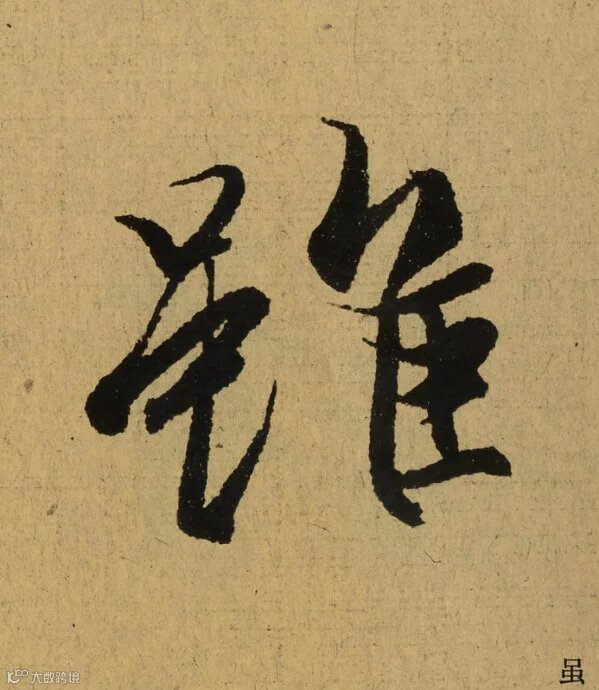 雖
虽
大数跨境